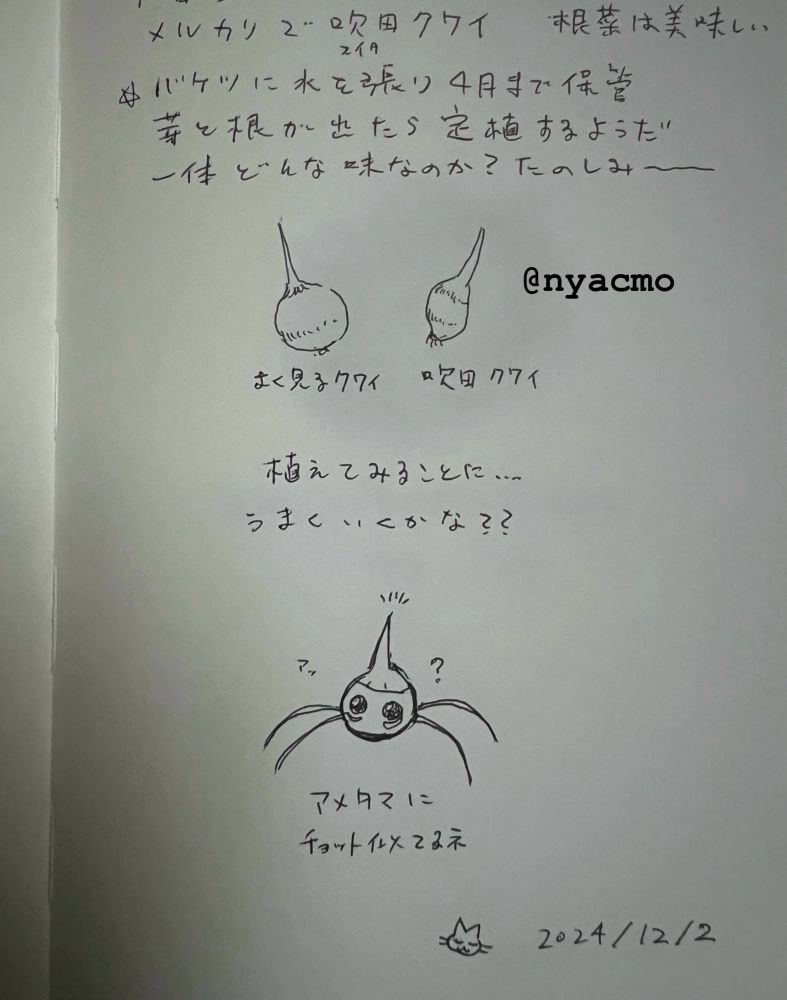 メルカリで 吹田クワイ 根菜は美味しい
スイタ
☆ バケツに水を張り 4月まで保管
芽と根が出たら定植するようだ
一体どんな味なのか？たのしみ――
@nyacmo
よく見るクワイ 吹田クワイ
植えてみることに....
うまくいくかな？？
アッ ？
アメタマに
チョット似てるネ
2024/12/2